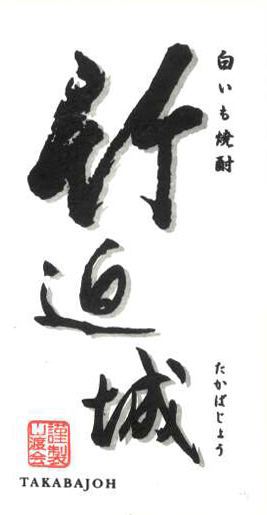 白いも焼酎
竹迫城
たかばじょう
謹製
竹渡会
TAKABAJOH